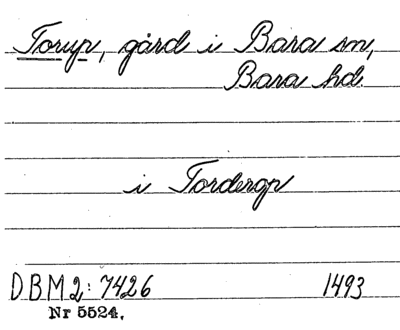 Torup, gård i Bara sn,
Bara hd.
i Tordergp
DBM 2: 7426 1493
Nr 5524.